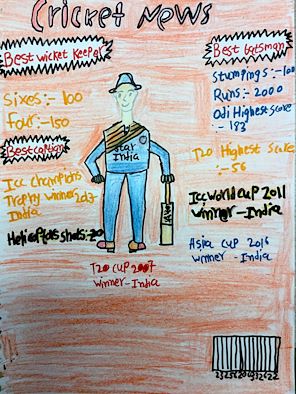 Cricket News
Best wicket keeper
Sixes:- 100
Four:- 150
Best caption
Icc champions
Trophy winner 2017
India
Helicopters shots:- 70
Star
India
T20 cup 2007
winner- India
Best Batsman
Stumpings:- 100
Runs:- 2000
Odi Highest score
:- 183
T20 Highest score
:- 56
Icc World cup 2011
winner - India
Asia cup 2016
winner - India